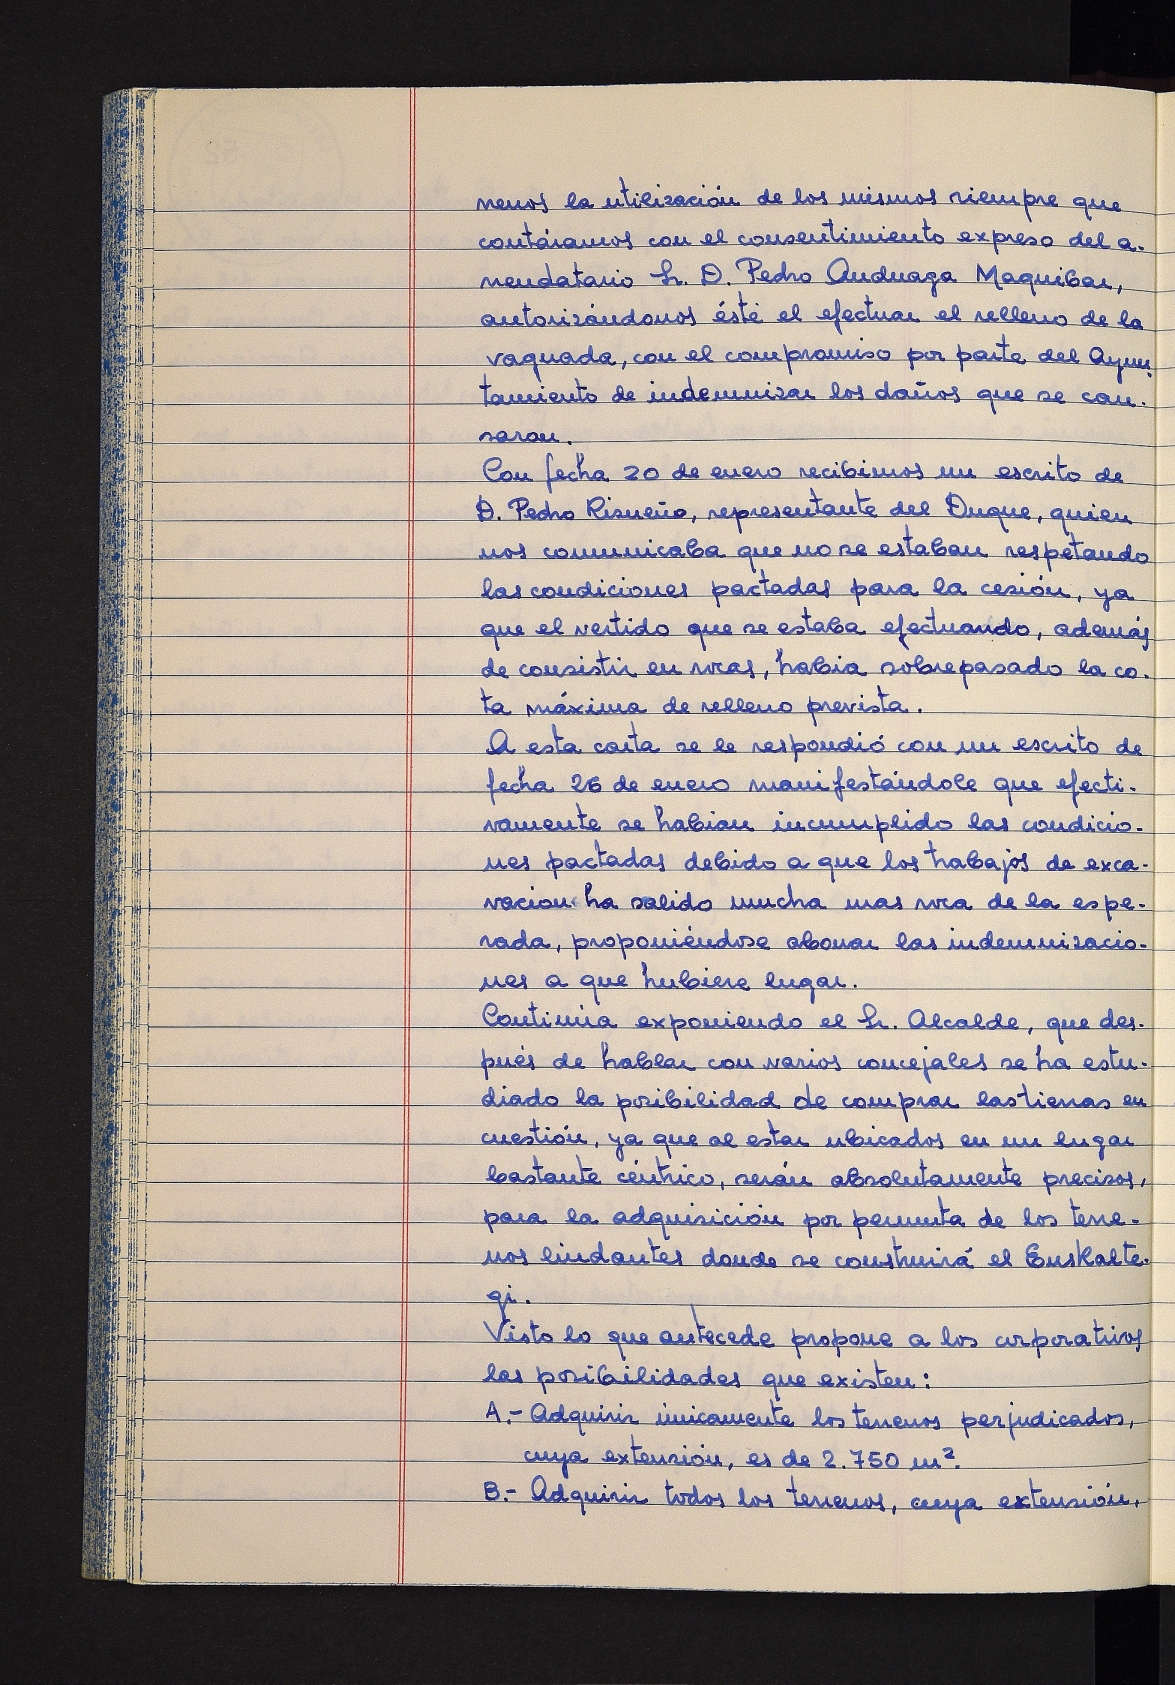 rrenos la utilización de los mismos siempre que
contáramos con el consentimiento expreso del a-
rrendatario Sr. D. Pedro Anduaga Maquibar,
autorizándonos éste el efectuar el relleno de la
vaguada, con el compromiso por parte del Ayun-
tamiento de indemnizar los daños que se cau-
saran.
Con fecha 20 de enero recibimos un escrito de
D. Pedro Risueño, representante del Duque, quien
nos comunicaba que no se estaban respetando
las condiciones pactadas para la cesión, ya
que el vertido que se estaba efectuando, además
de consistir en rocas, habia sobrepasado la co-
ta máxima de relleno prevista.
A esta carta se le respondió con un escrito de
fecha 26 de enero manifestándole que efecti-
vamente se habian incumplido las condicio-
nes pactadas debido a que los trabajos de exca-
vacion ha salido mucha mas roca de la espe-
rada, proponiéndose abonar las indemnizacio-
nes a que hubiere lugar.
Continúa exponiendo el Sr. Alcalde, que des-
pués de hablar con varios concejales se ha estu-
diado la posibilidad de comprar las tierras en
cuestión, ya que al estar ubicados en un lugar
bastante céntrico, serán absolutamente precisos,
para la adquisición por permuta de los terre-
nos lindantes donde se construirá el Euskalte-
gi.
Visto lo que antecede propone a los corporativos
las posibilidades que existen:
A.- Adquirir únicamente los terrenos perjudicados,
cuya extensión, es de 2.750 m².
B.- Adquirir todos los terrenos, cuya extensión,